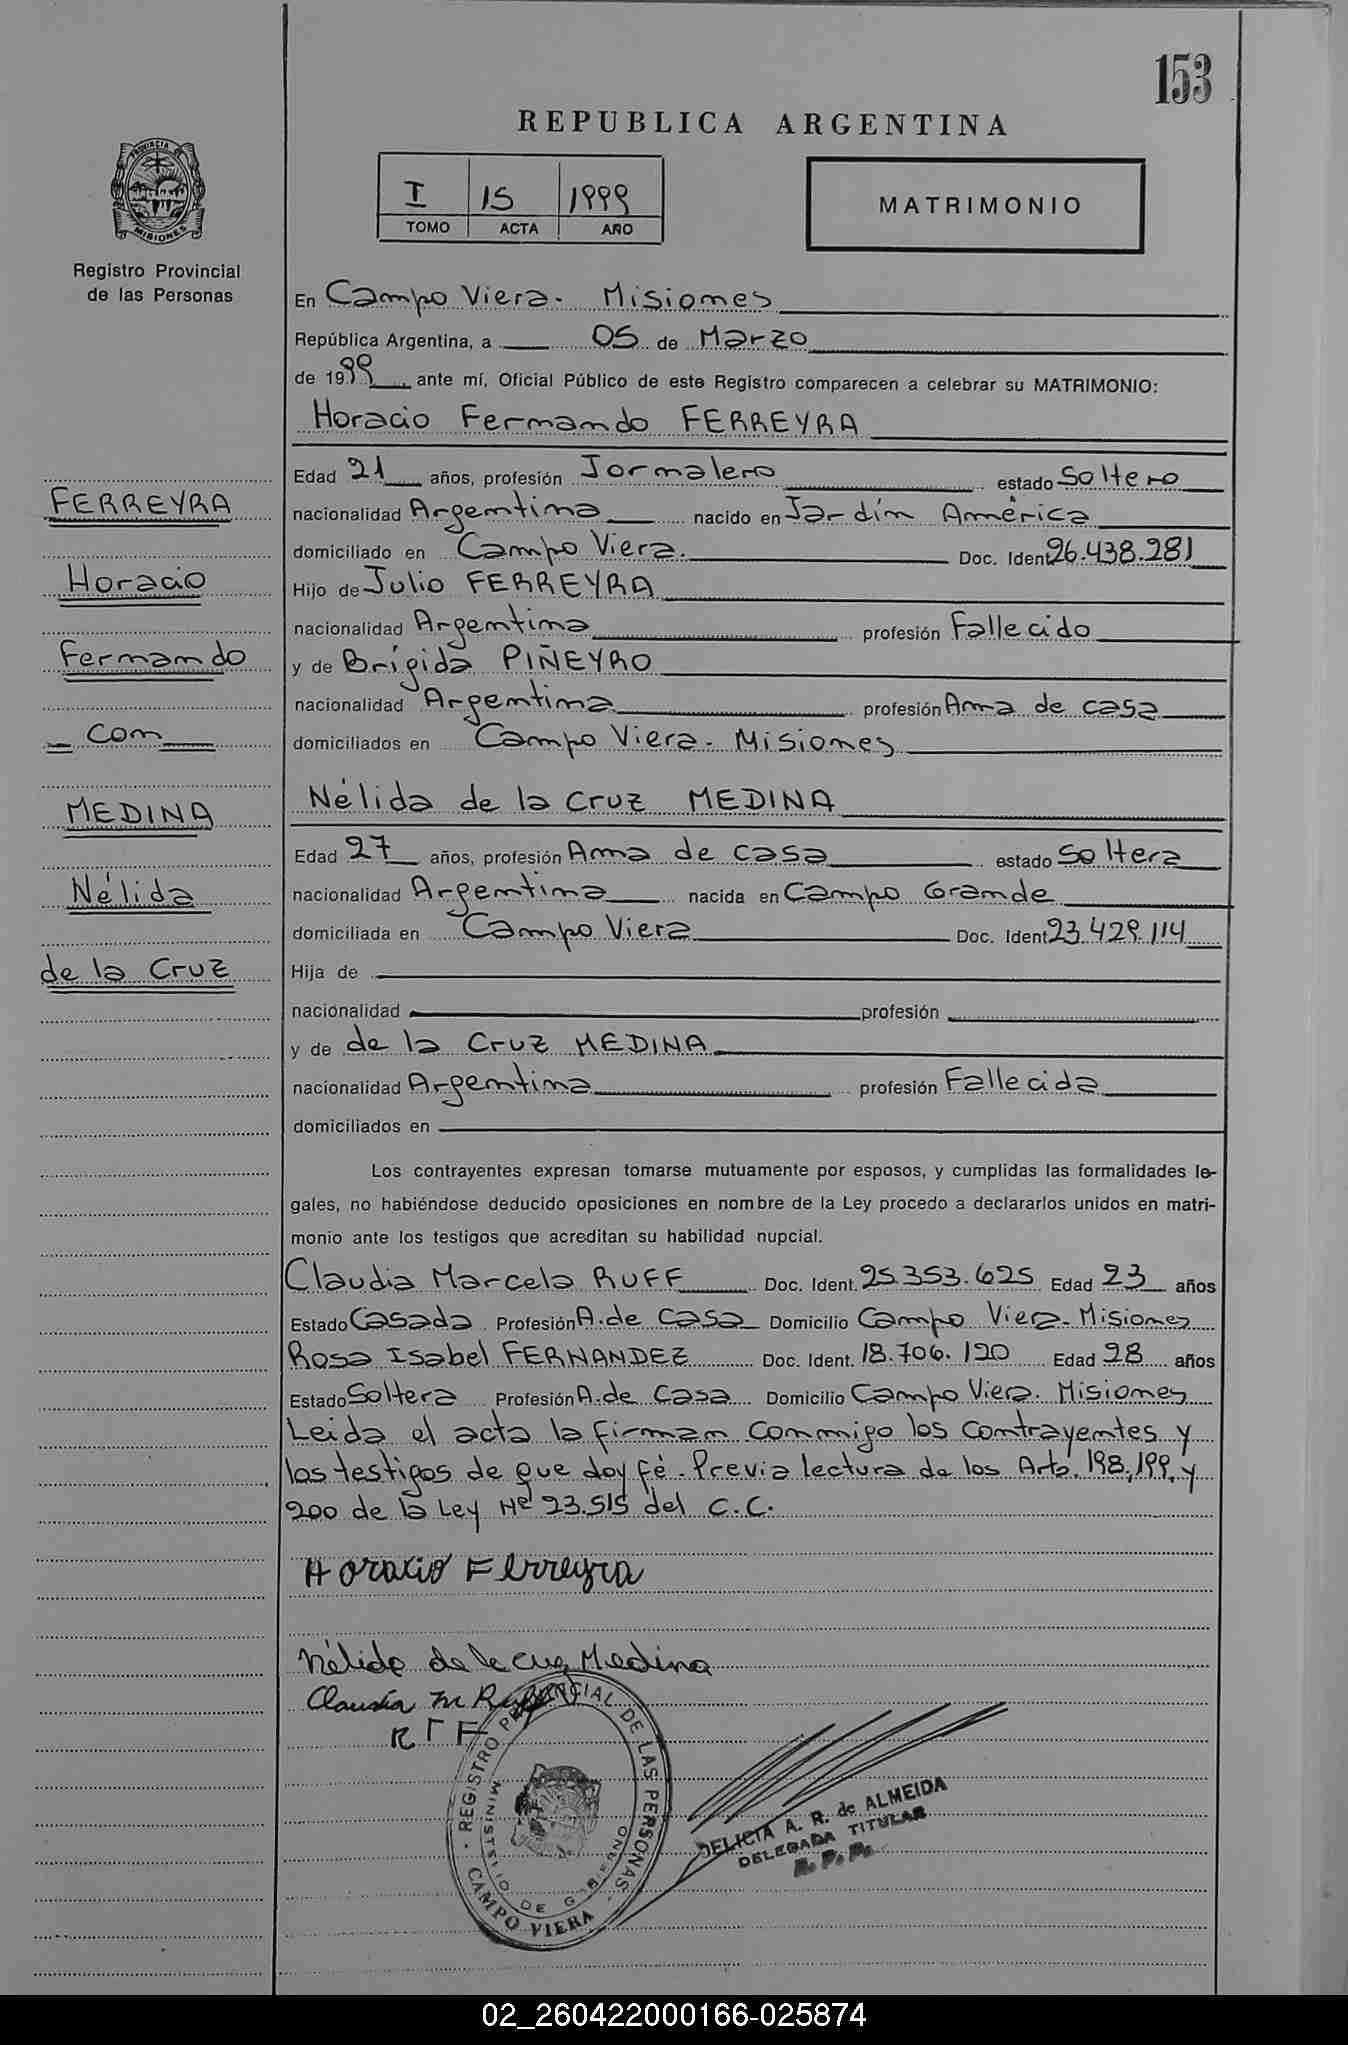 153
REPUBLICA ARGENTINA
PROVINCIA DE
MISIONES
I 15 1999
TOMO ACTA AÑO
MATRIMONIO
Registro Provincial
de las Personas
En Campo Viera - Misiones
República Argentina, a 05 de Marzo
de 1999, ante mí, Oficial Público de este Registro comparecen a celebrar su MATRIMONIO:
Horacio Fernando FERREYRA
Edad 21 años, profesión Jornalero estado Soltero
nacionalidad Argentina nacido en Jardín América
domiciliado en Campo Viera. Doc. Ident. 26.438.281
Hijo de Julio FERREYRA
nacionalidad Argentina profesión Fallecido
y de Brígida PIÑEYRO
nacionalidad Argentina profesión Ama de casa
domiciliados en Campo Viera - Misiones
Nélida de la Cruz MEDINA
Edad 27 años, profesión Ama de casa estado Soltera
nacionalidad Argentina nacida en Campo Grande
domiciliada en Campo Viera Doc. Ident. 23.429.114
Hija de
nacionalidad profesión
y de de la Cruz MEDINA
nacionalidad Argentina profesión Fallecida
domiciliados en
Los contrayentes expresan tomarse mutuamente por esposos, y cumplidas las formalidades le-
gales, no habiéndose deducido oposiciones en nombre de la Ley procedo a declararlos unidos en matri-
monio ante los testigos que acreditan su habilidad nupcial.
Claudia Marcela RUFF Doc. Ident. 25.353.625 Edad 23 años
Estado Casada Profesión A. de Casa Domicilio Campo Viera - Misiones
Rosa Isabel FERNANDEZ Doc. Ident. 18.706.190 Edad 28 años
Estado Soltera Profesión A. de Casa Domicilio Campo Viera. Misiones
Leida el acta la firman conmigo los contrayentes y
los testigos de que doy fé. Previa lectura de los Arts. 198, 199, y
200 de la Ley Nº 23.515 del C.C.
FERREYRA
Horacio
Fernando
- con
MEDINA
Nélida
de la Cruz
Horacio Ferreyra
Nélida de la Cruz Medina
Claudia M Ruff
R I F
REGISTRO PROVINCIAL DE LAS PERSONAS
MINISTERIO DE GOBIERNO
CAMPO VIERA
DELICIA A. R. de ALMEIDA
DELEGADA TITULAR
R. P. P.
02_260422000166-025874